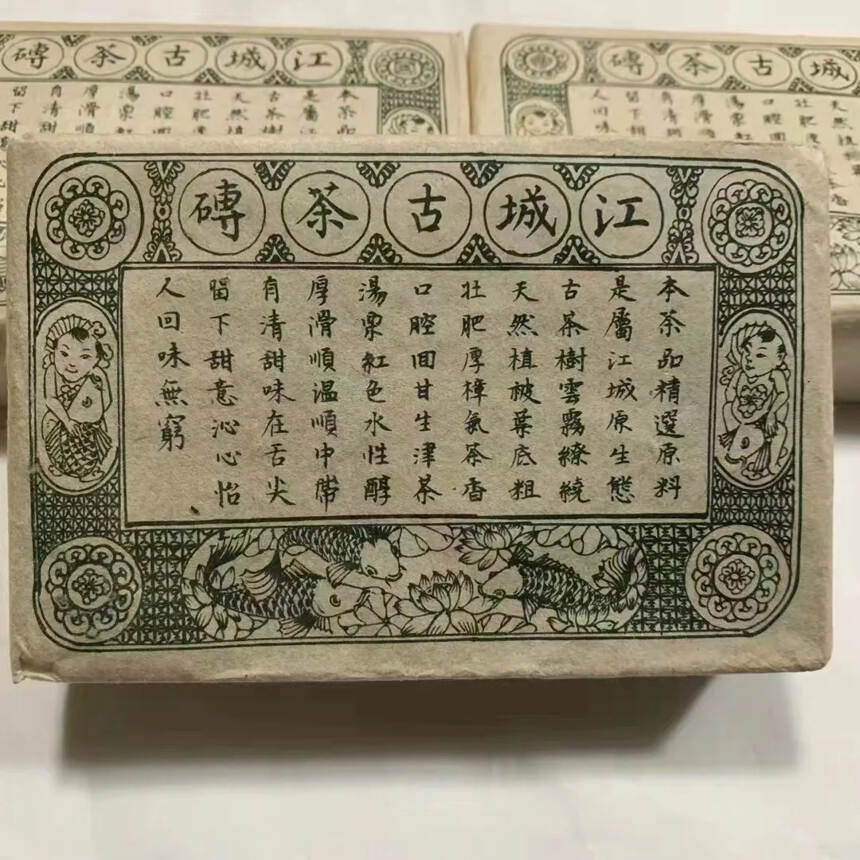 江城古茶磚
本茶品精選原料
是屬江城原生態
古茶樹雲霧繚繞
天然植被葉底粗
壯肥厚樟氣茶香
口腔回甘生津茶
湯栗紅色水性醇
厚滑順溫順中帶
有清甜味在舌尖
留下甜意沁心怡
人回味無窮
江城古茶磚
本茶品
是屬江
古茶樹
天然植
壯肥厚
口腔
湯栗紅
厚滑順
有清甜
留下甜
城古茶磚
天然植被
壯肥厚
口腔回
湯栗紅
厚滑順
有清甜
留下甜
人回味